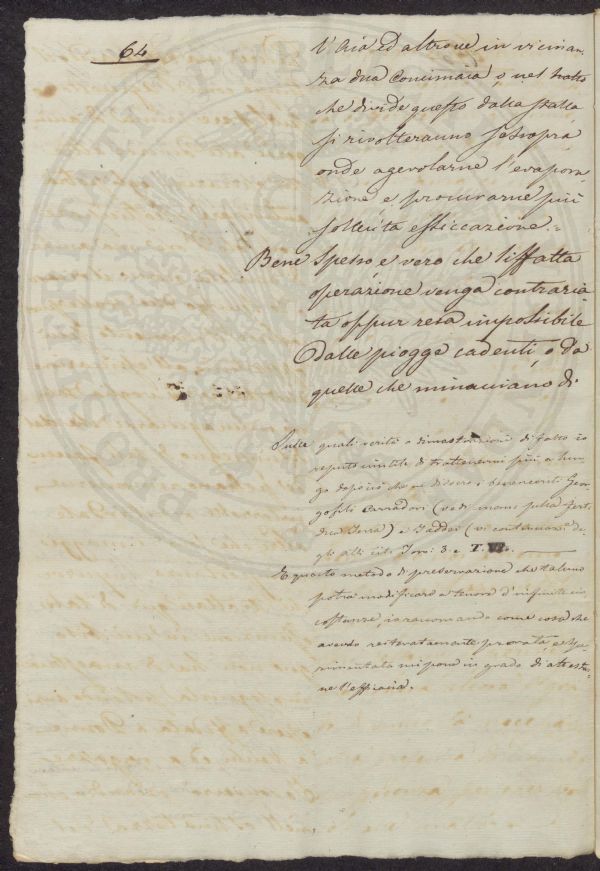 64
l'Aia ed altrove in vicinan-
za dua Concimaia, o nel tratto
che divide questo dalla stalla
si rivolteranno sossopra
onde agevolarne l'evapora-
zione e procurarne più
sollecita essiccazione.=
Bene spesso e vero che siffatta
operazione venga contraria
ta oppur resa impossibile
dalle piogge cadenti, o da
quelle che minacciano di
Sulle quali verità e dimostrazioni di fatto io
reputo inutile di trattenermi più a lun-
go dopo ciò che ne dissero i benemeriti Geor-
gofili Carradori (vedi mem: sulla Ferti-
Terra) e Taddei (vi
gli atti Tom: 3. e T. VI.
E questo metodo di preservazione che taluno
potrà modificare a tenore d'infinite cir-
costanze, io raccomando come cosa che
avendo reiteratamente provata, e spe-
rimentata mi pone in grado di attestar-
ne l'efficacia.
POSTERITATI